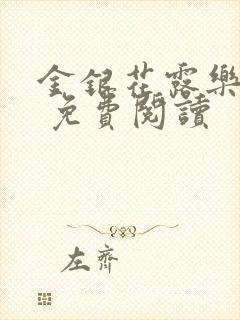 金銀花露樂
免費閱讀
左齊